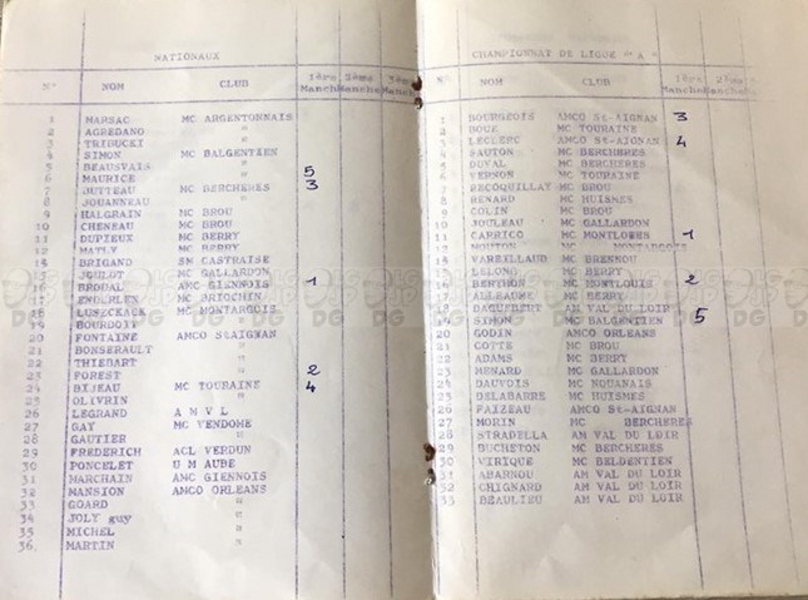 NATIONAUX
N° NOM CLUB 1ère Manche 2ème Manche 3ème Manche
1 MARSAC MC ARGENTONNAIS
2 AGREDANO "
3 TRIBUCKI "
4 SIMON MC BALGENTIEN
5 BEAUSVAIS "
6 MAURICE " 5
7 BUTTEAU MC BERCHERES 3
8 JOUANNEAU "
9 HALGRAIN MC BROU
10 CHENEAU MC BROU
11 DUPIEUX MC BERRY
12 MATLY MC BERRY
14 BRIGAND SM CASTRAISE
15 JOULOT MC GALLARDON
16 BRODAL AMC GIENNOIS 1
17 ENDERLEN MC BRIOCHIN
18 LUSECKACK MC MONTARGOIS
19 BOURDOIT "
20 FONTAINE AMCO StAIGNAN
21 BONSERAULT "
22 THIEBART "
23 FOREST " 2
24 BIJEAU MC TOURAINE 4
25 OLIVRIN "
26 LEGRAND A M V L
27 GAY MC VENDOME
28 GAUTIER "
29 FREDERICH ACL VERDUN
30 PONCELET U M AUBE
31 MARCHAIN AMC GIENNOIS
32 MANSION AMCO ORLEANS
33 GOARD "
34 JOLY guy "
35 MICHEL "
36. MARTIN "
CHAMPIONNAT DE LIGUE " A "
N° NOM CLUB 1ère Manche 2ème Manche
1 BOURGEOIS AMCO St-AIGNAN 3
2 BOUE MC TOURAINE
3 LECLERC AMCO St-AIGNAN 4
4 SAUTON MC BERCHERES
5 DUVAL MC BERCHERES
6 VERNON MC TOURAINE
7 RECOQUILLAY MC BROU
8 RENARD MC HUISMES
9 COLIN MC BROU
10 JOULEAU MC GALLARDON
11 CARRICO MC MONTLOUIS 1
12 MOUTON MC MONTARGOIS
VAREILLAUD MC BRENNOU
LELONG MC BERRY
16 BERTHON MC MONTLOUIS 2
17 ALLEAUME MC BERRY
18 DAGUFBERT AM VAL DU LOIR
19 SIMON MC BALGENTIEN 5
20 GODIN AMCO ORLEANS
21 COTTE MC BROU
22 ADAMS MC BERRY
23 MENARD MC GALLARDON
24 DAUVOIS MC NOUANAIS
25 DELABARRE MC HUISMES
26 FAIZEAU AMCO St-AIGNAN
27 MORIN MC BERCHERES
28 STRADELLA AM VAL DU LOIR
29 BUCHETON MC BERCHERES
30 VIRIQUE MC BELDENTIEN
31 ABARNOU AM VAL DU LOIR
32 CHIGNARD AM VAL DU LOIR
33 BEAULIEU AM VAL DU LOIR
DG
DG
DG
DG